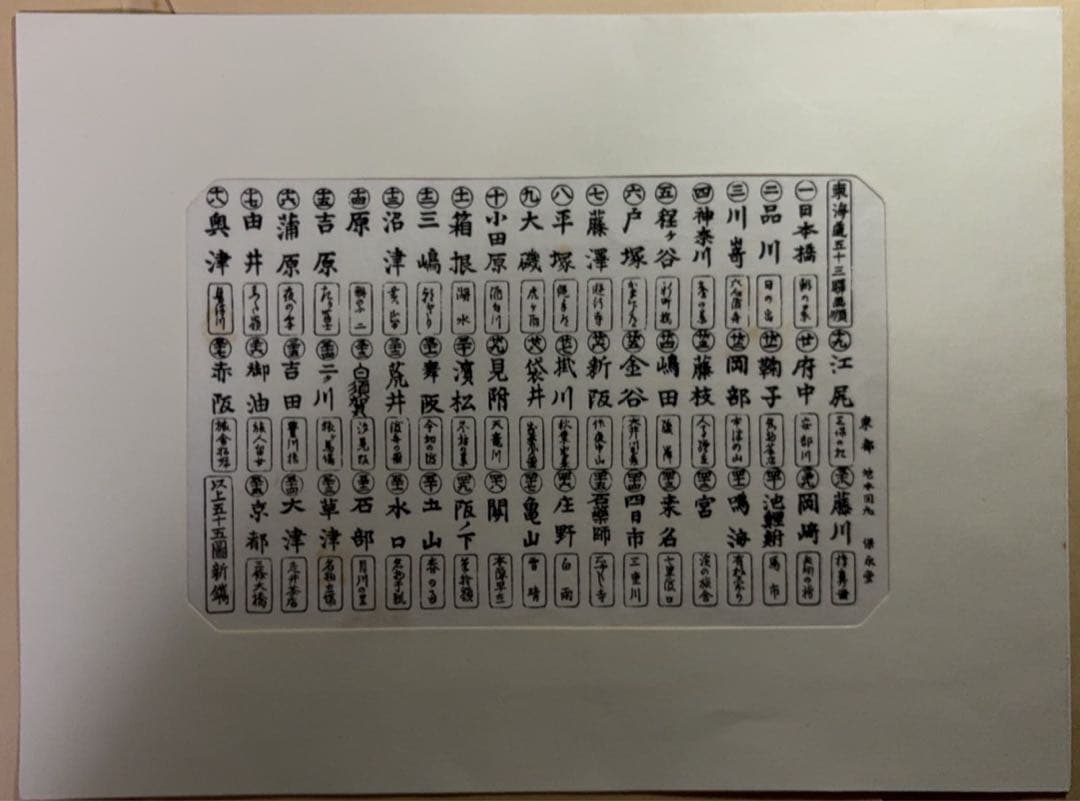 東海道五十三驛画順
一 日本橋 朝の景
二 品川 日の出
三 川嵜 六合渡舟
四 神奈川 臺の景
五 程ヶ谷 新町橋
六 戸塚
七 藤澤 遊行寺
八 平塚 縄手道
九 大磯 虎ヶ雨
十 小田原 酒匂川
十一 箱根 湖水
十二 三嶋 朝ぎり
十三 沼津 黄昏
十四 原 朝の不二
十五 吉原 左り冨士
十六 蒲原 夜の雪
十七 由井 さった嶺
十八 奥津 興津川
十九 江尻 三保の松
廿 府中 安部川
廿一 鞠子 名物茶店
廿二 岡部 宇津の山
廿三 藤枝 人馬継立
廿四 嶋田 駿岸
廿五 金谷 大井川遠岸
廿六 新阪 佐夜中山
廿七 掛川 秋葉山遠望
廿八 袋井 出茶屋圖
廿九 見附 天竜川
三十 濱松 冬枯の景
三十一 舞阪 今切の
三十二 荒井 渡舟の圖
三十三 白須賀 汐見阪
三十四 二タ川 猿ヶ馬場
三十五 吉田 豊川橋
三十六 御油 旅人留女
三十七 赤阪 旅舎招婦
東都 保永堂
三十八 藤川 棒鼻圖
三十九 岡崎 矢矧の橋
四十 池鯉鮒 馬市
四十一 鳴海 有松絞り
四十二 宮 濱の旅舎
四十三 桒名 七里渡口
四十四 四日市 三重川
四十五 石藥師
四十六 庄野 白雨
四十七 亀山 雪晴
四十八 關 本陣早立
四十九 阪ノ下 筆捨嶺
五十 土山 春の雨
五十一 水口 名物干瓢
五十二 石部 目川の里
五十三 草津 名物立場
五十四 大津 走井茶店
五十五 京都 三條大橋
以上五十五圖新鐫